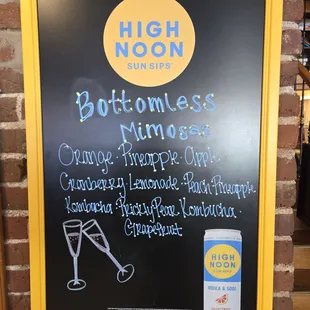 HIGH
NOON
SUN SIPS®
Bottomless
Mimosas
Orange · Pineapple · Apple
Cranberry Lemonade · Peach Pineapple
Kombucha · Prickly Pear Kombucha ·
Grapefruit
HIGH
NOON
VODKA & SODA